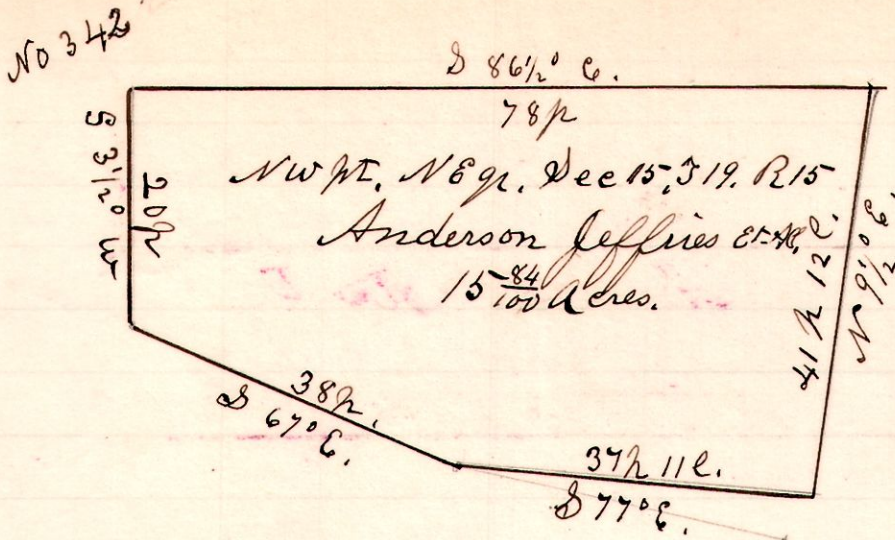 No 342
S 86½° E.
78p
S 3½° W
20p
NW pt. NE qr. Sec 15, T 19. R 15
Anderson Jeffries et al,
15 84/100 Acres.
41 p 12 l.
N 9½° E.
38p.
S 67° E.
37p 11 l.
S 77° E.